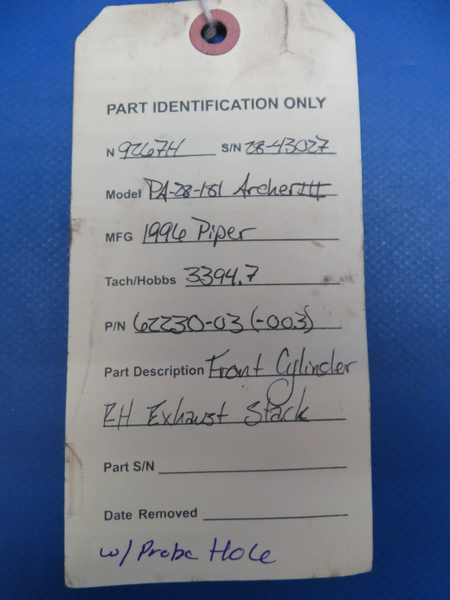 PART IDENTIFICATION ONLY
N 9267H S/N 28-43027
Model PA-28-181 Archer III
MFG 1996 Piper
Tach/Hobbs 3394.7
P/N 62230-03 (-003)
Part Description Front Cylinder
RH Exhaust Stack
Part S/N
Date Removed
w/ Probe Hole